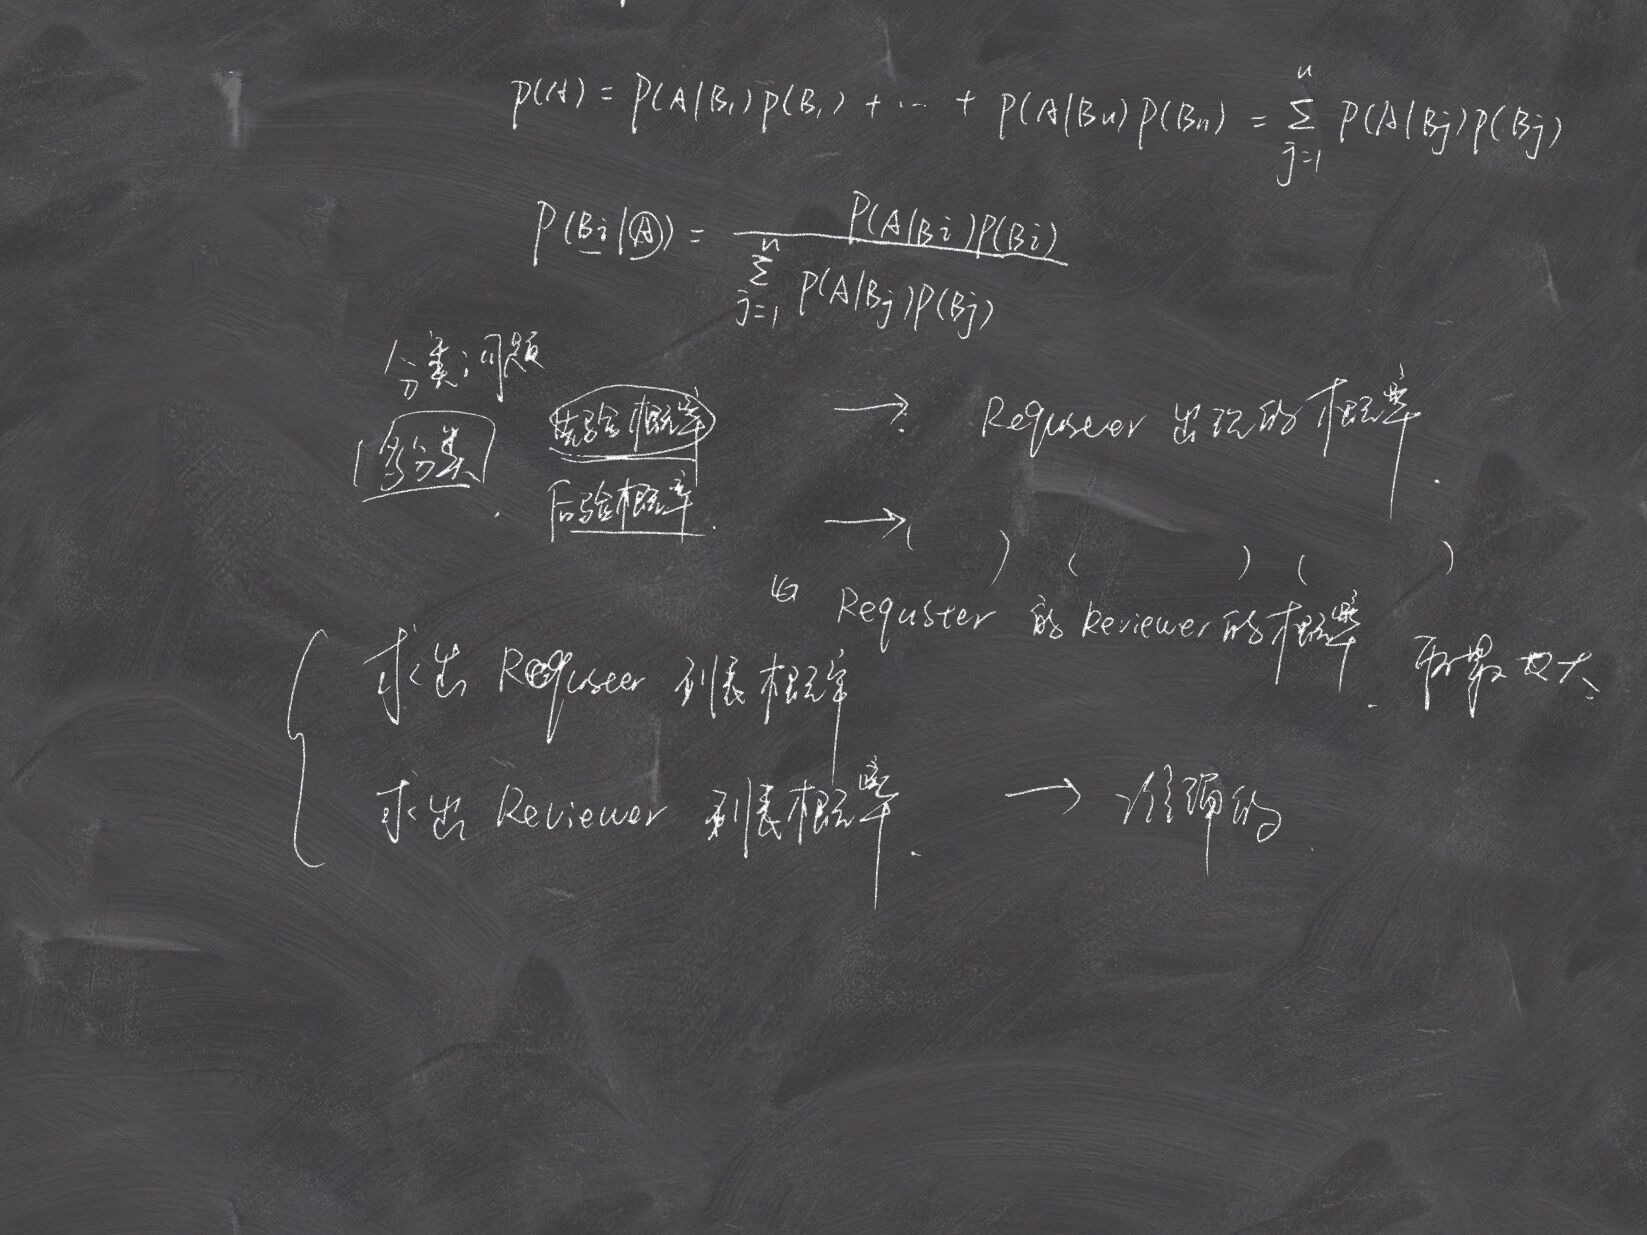 P(A) = P(A|B₁)P(B₁) + ... + P(A|Bn)P(Bn) = ∑ⁿⱼ₌₁ P(A|Bj)P(Bj)
P(Bi|A) = P(A|Bi)P(Bi) / ∑ⁿⱼ₌₁ P(A|Bj)P(Bj)
分类问题
多分类
先验概率 → Requseer 出现的概率.
后验概率. → ( ) ( ) ( )
Requster 的 Reviewer 的概率. 取最大
求出 Requseer 列表概率
求出 Reviewer 列表概率. →